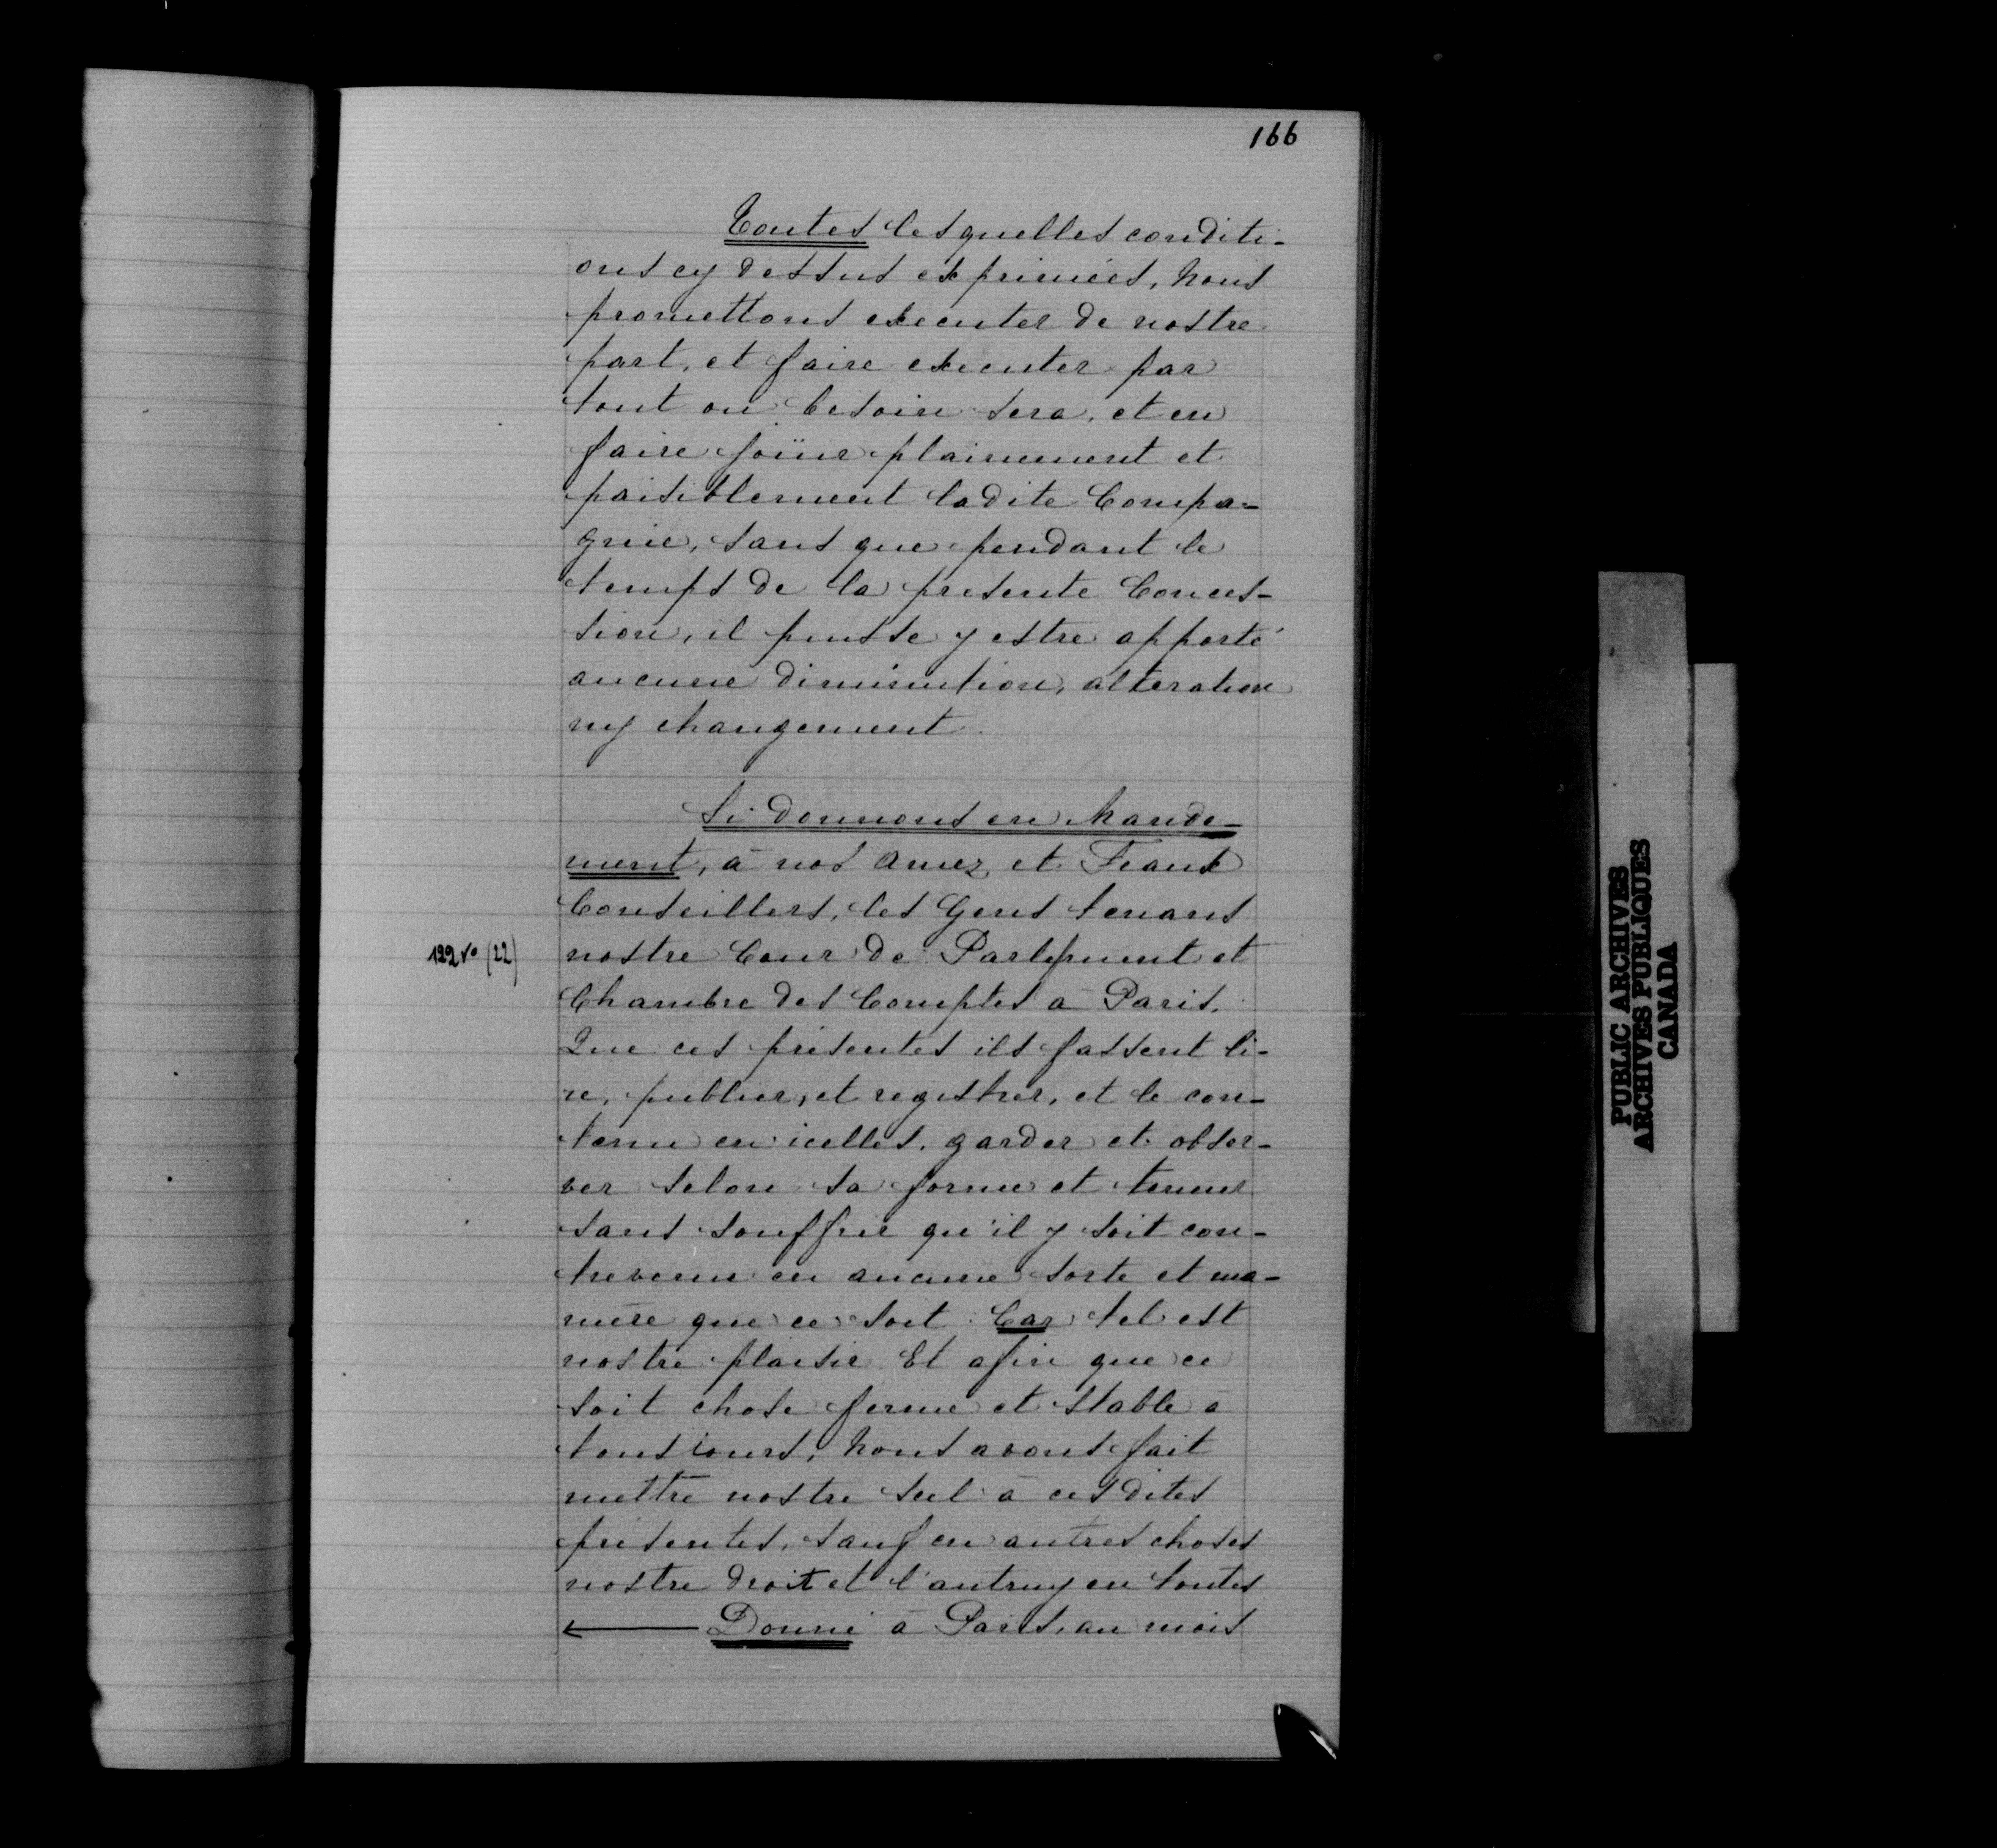 166
Toutes lesquelles conditi-
ons cy dessus exprimées, Nous
promettons executer de nostre
part, et faire executer par
tout ou besoin sera, et en
faire joüir plainement et
paisiblement ladite Compa-
gnie, sans que pendant le
temps de la presente Conces-
sion, il puisse y estre apporté
aucune diminution, alteration
ny changement.
Si donnons en Mande-
ment, à nos amez et Feaux
Conseillers, les Gens tenans
122 vo (22)
nostre Cour de Parlement et
Chambre des Comptes à Paris.
Que ces présentes ils fassent li-
re, publier, et registrer, et le con-
tenu en icelles, garder et obser-
ver selon sa forme et teneur
sans souffrir qu'il y soit con-
trevenu en aucune sorte et ma-
nière que ce soit. Car tel est
nostre plaisir Et afin que ce
soit chose ferme et stable à
tousiours, Nous avons fait
mettre nostre Scel à ces dites
présentes, sauf en autres choses
nostre droit et l'autruy en toutes
Donné à Paris, au mois
PUBLIC ARCHIVES
ARCHIVES PUBLIQUES
CANADA